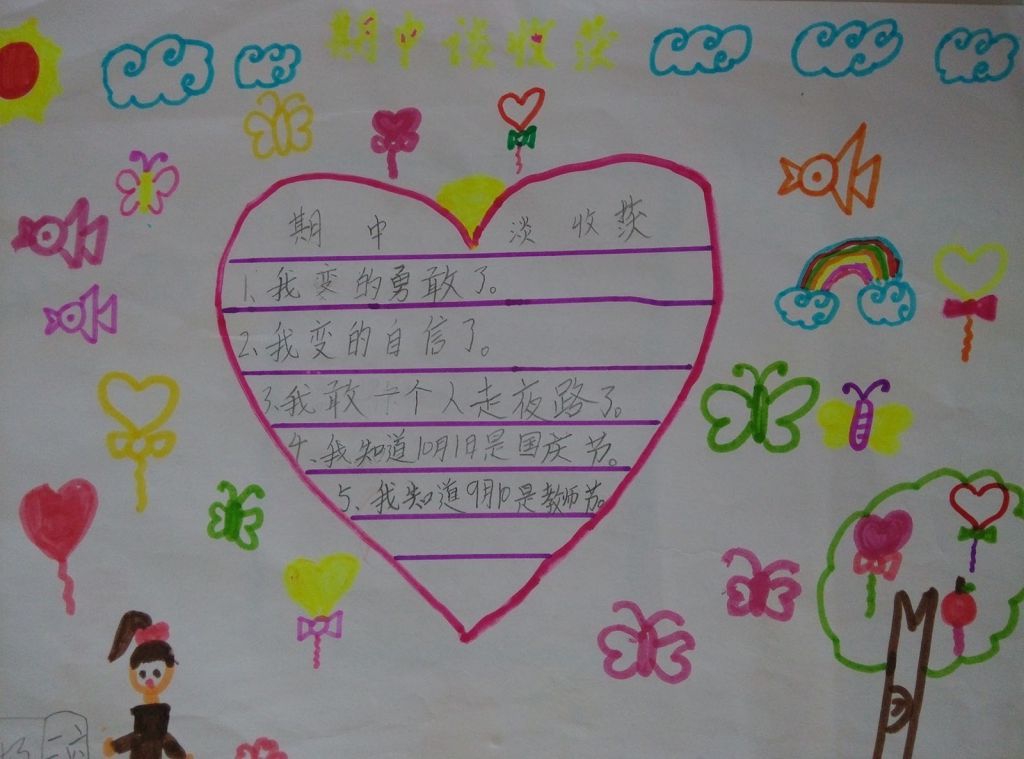 期中谈收获
期中淡收获
1、我变的勇敢了。
2、我变的自信了。
3、我敢一个人走夜路了。
4、我知道10月1日是国庆节。
5、我知道9月10是教师节。
二六